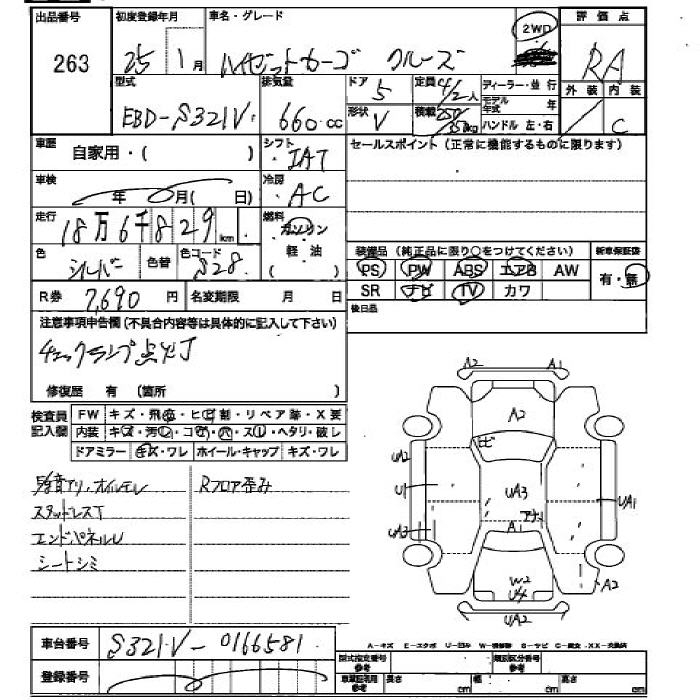 出品番号 初度登録年月 車名・グレード 評価点
263 25年 1月 ハイゼットカーゴ クルーズ 2WD RA
型式 排気量 ドア 定員 ディーラー・並行 外装 内装
EBD-S321V 660cc 5 4/2人 モデル年式 年
形状 V 積載 250/350kg ハンドル 左・右 / C
車歴 自家用・( ) シフト IAT セールスポイント(正常に機能するものに限ります)
車検 年 月( 日) 冷房 AC
走行 18万6千829km 燃料 ガソリン
軽油
( )
色 シルバー 色替 色コード S28 装備品(純正品に限り○をつけてください) 新車保証書
PS PW ABS エアB AW 有・無
R券 7,690円 名変期限 月 日 SR ナビ TV カワ
注意事項申告欄(不具合内容等は具体的に記入して下さい) 後日品
チェックランプ点灯
修復歴 有 (箇所 )
検査員記入欄 FW キズ・飛石・ヒビ割・リペア跡・X要
内装 キズ・汚レ・コゲ・穴・スレ・ヘタリ・破レ
ドアミラー キズ・ワレ ホイール・キャップ キズ・ワレ
オイルモレ Rフロア歪み
スタッドレスT
エンドパネルU
シートシミ
A2 A1
A2
ヒビ
UA2
U1 UA3 UA1
UA3 A1
W2 A2
U4
UA2
車台番号 S321V-0166581
A-キズ E-エクボ U-凹み W-補修跡 S-サビ C-腐食 XX-交換済
登録番号 型式指定番号 参考 類別区分番号 参考
車庫証明用 参考 長さ cm 幅 cm 高さ cm